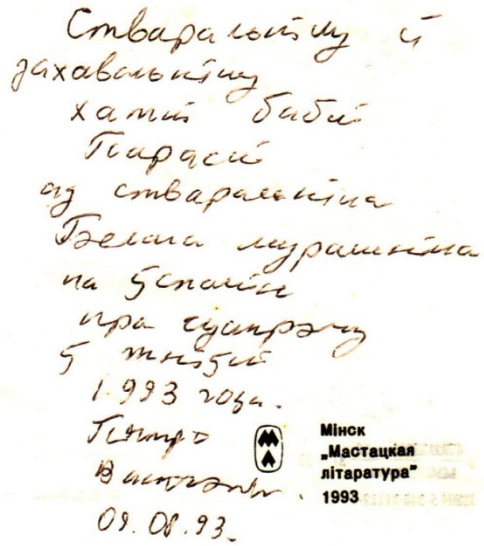 Стваральніку й
захавальніку
хаты бабы
Парасі
ад стваральніка
Белага мурашніка
на ўспамін
пра сустрэчу
ў жніўні
1993 года.
Пятро
Васючэнка.
09.08.93.
Мінск
„Мастацкая
літаратура"
1993